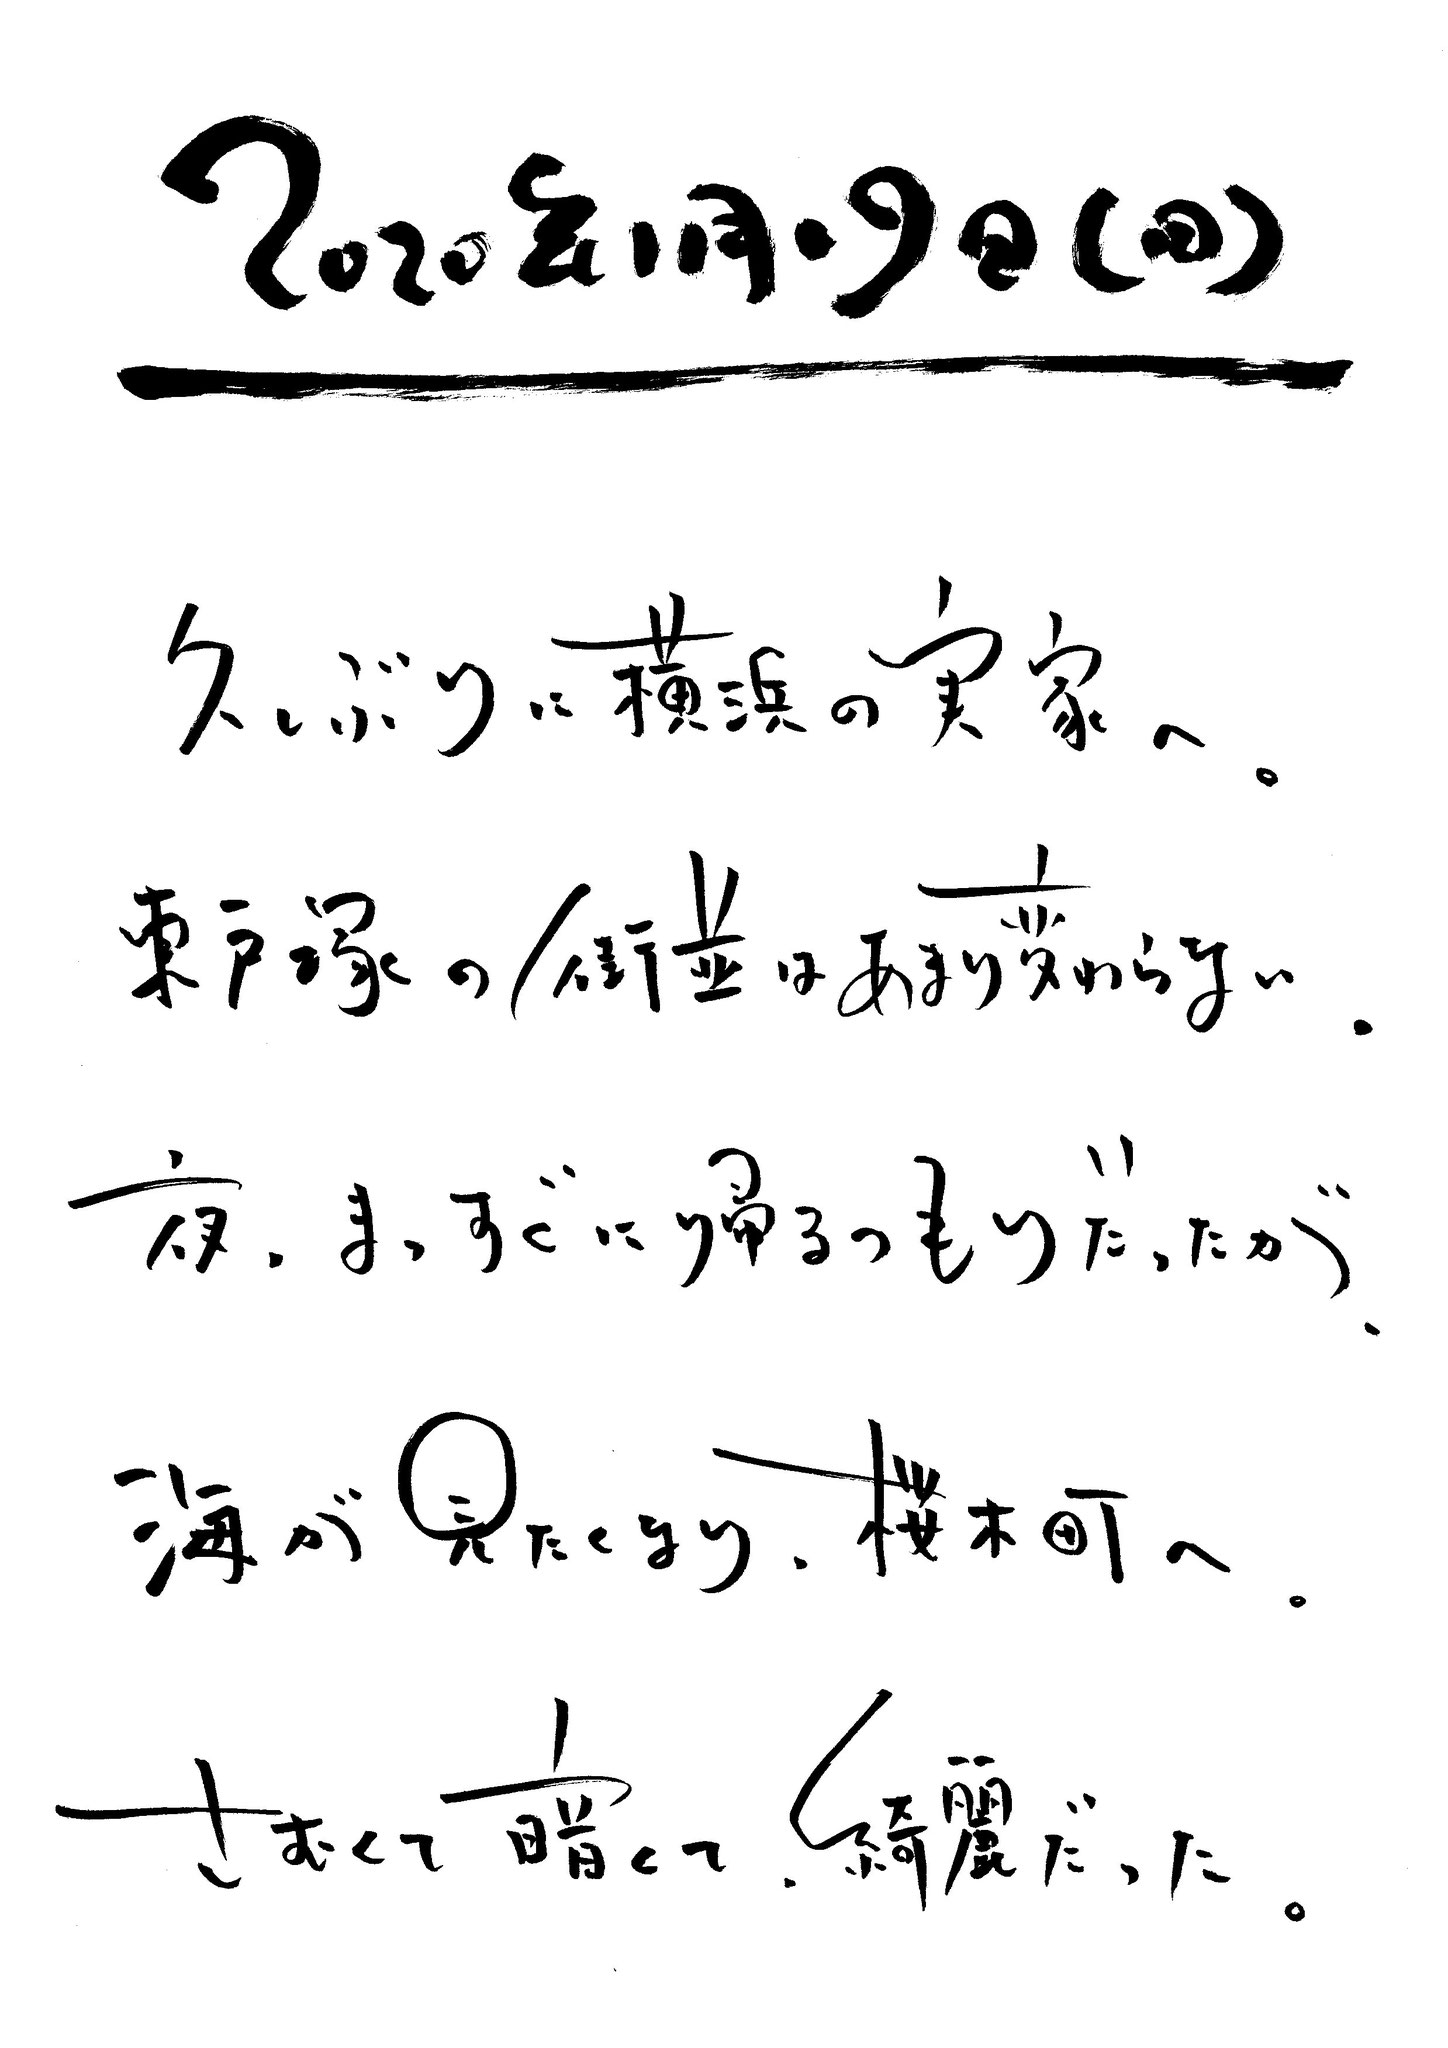 2020年1月19日(日)
久しぶりに横浜の実家へ。
東戸塚の街並はあまり変わらない。
夜、まっすぐに帰るつもりだったが、
海が見たくなり、桜木町へ。
さむくて暗くて、綺麗だった。